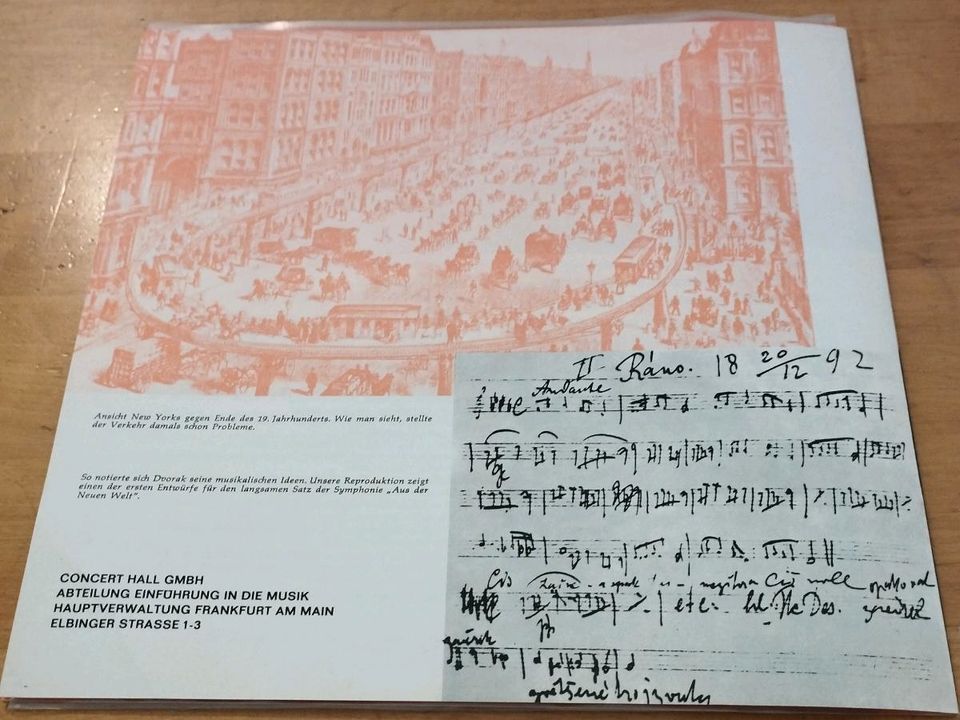 II Ráno. 18 20/12 92
Andante
Ansicht New Yorks gegen Ende des 19. Jahrhunderts. Wie man sieht, stellte
der Verkehr damals schon Probleme.
So notierte sich Dvorak seine musikalischen Ideen. Unsere Reproduktion zeigt
einen der ersten Entwürfe für den langsamen Satz der Symphonie „Aus der
Neuen Welt".
Cis moll
etc.
CONCERT HALL GMBH
ABTEILUNG EINFÜHRUNG IN DIE MUSIK
HAUPTVERWALTUNG FRANKFURT AM MAIN
ELBINGER STRASSE 1-3